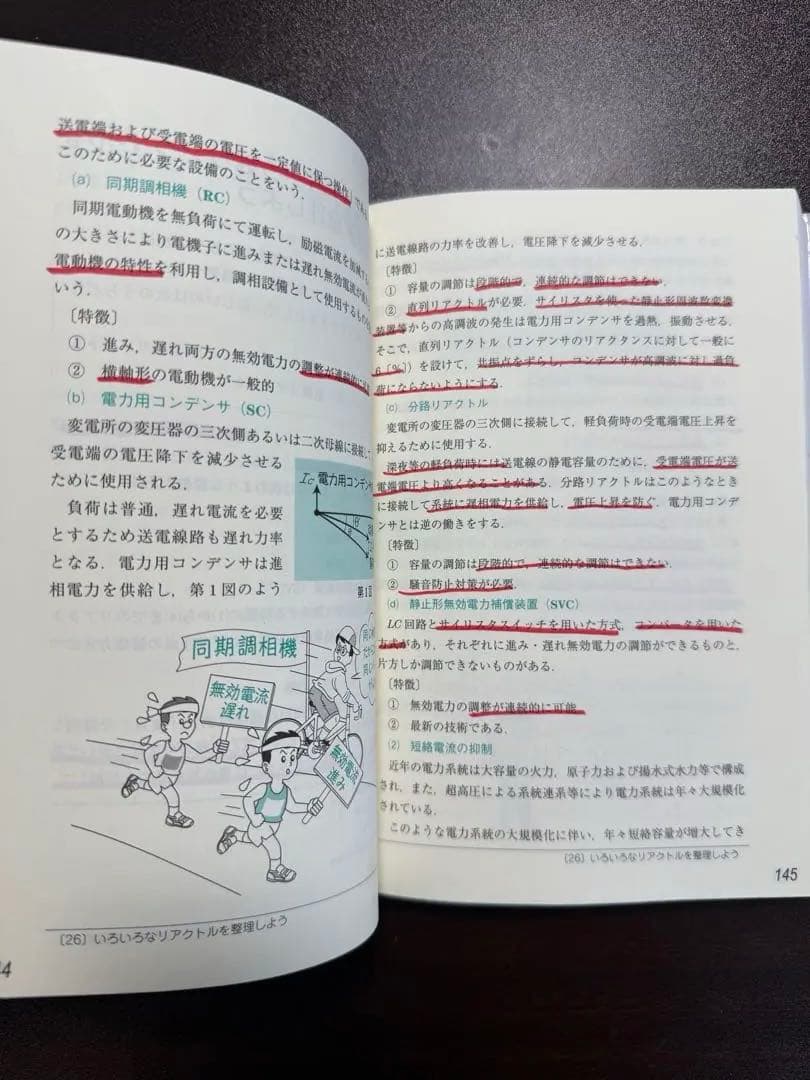 送電端および受電端の電圧を一定値に保つ操作」であ
このために必要な設備のことをいう.
(a) 同期調相機（RC）
同期電動機を無負荷にて運転し，励磁電流を加減す
の大きさにより電機子に進みまたは遅れ無効電流が
電動機の特性を利用し，調相設備として使用するもの
いう．
〔特徴〕
① 進み，遅れ両方の無効電力の調整が連続的に
② 横軸形の電動機が一般的
(b) 電力用コンデンサ（SC）
変電所の変圧器の三次側あるいは二次母線に接続して
受電端の電圧降下を減少させる
ために使用される．
負荷は普通，遅れ電流を必要
とするため送電線路も遅れ力率
となる．電力用コンデンサは進
相電力を供給し，第1図のよう
IC 電力用コンデンサ
第1図
同期調相機
無効電流
遅れ
無効電流
進み
〔26〕いろいろなリアクトルを整理しよう
4
に送電線路の力率を改善し，電圧降下を減少させる．
〔特徴〕
① 容量の調節は段階的で，連続的な調節はできない．
② 直列リアクトルが必要．サイリスタを使った静止形周波数変換
装置等からの高調波の発生は電力用コンデンサを過熱，振動させる．
そこで，直列リアクトル（コンデンサのリアクタンスに対して一般に
6〔%〕）を設けて，共振点をずらし，コンデンサが高調波に対し過負
荷にならないようにする．
(c) 分路リアクトル
変電所の変圧器の三次側に接続して，軽負荷時の受電端電圧上昇を
抑えるために使用する．
深夜等の軽負荷時には送電線の静電容量のために，受電端電圧が送
電端電圧より高くなることがある．分路リアクトルはこのようなとき
に接続して系統に遅相電力を供給し，電圧上昇を防ぐ．電力用コンデ
ンサとは逆の働きをする．
〔特徴〕
① 容量の調節は段階的で，連続的な調節はできない．
② 騒音防止対策が必要．
(d) 静止形無効電力補償装置（SVC）
LC回路とサイリスタスイッチを用いた方式，コンバータを用いた
方式があり，それぞれに進み・遅れ無効電力の調節ができるものと，
片方しか調節できないものがある．
〔特徴〕
① 無効電力の調整が連続的に可能
② 最新の技術である．
(2) 短絡電流の抑制
近年の電力系統は大容量の火力，原子力および揚水式水力等で構成
され，また，超高圧による系統連系等により電力系統は年々大規模化
されている．
このような電力系統の大規模化に伴い，年々短絡容量が増大してき
〔26〕いろいろなリアクトルを整理しよう
145